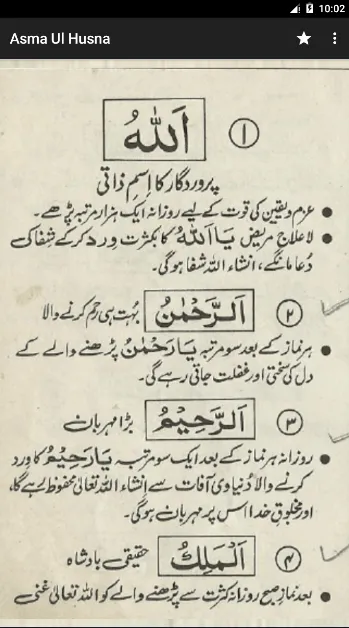 10:02
Asma Ul Husna
۱ اَللّٰهُ
پروردگار کا اِسمِ ذاتی
● عزم ویقین کی قوت کے لیے روزانہ ایک ہزار مرتبہ پڑھے۔
● لاعلاج مریض یَااَللّٰهُ کا بکثرت ورد کرکے شفا کی
دُعا مانگے، انشاء اللہ شفا ہوگی۔
۲ اَلرَّحْمٰنُ بہُت ہی رحم کرنے والا
● ہر نماز کے بعد سو مرتبہ یَارَحْمٰنُ پڑھنے والے کے
دل کی سختی اور غفلت جاتی رہے گی۔
۳ اَلرَّحِیْمُ بڑا مہربان
● روزانہ ہر نماز کے بعد ایک سو مرتبہ یَارَحِیْمُ کا ورد
کرنے والا دُنیاوی آفات سے اِنشاء اللہ تعالیٰ محفوظ رہے گا،
اور مخلوقِ خدا اس پر مہربان ہوگی۔
۴ اَلْمَلِكُ حقیقی بادشاہ
● بعد نمازِ صبح روزانہ کثرت سے پڑھنے والے کو اللہ تعالیٰ غنی